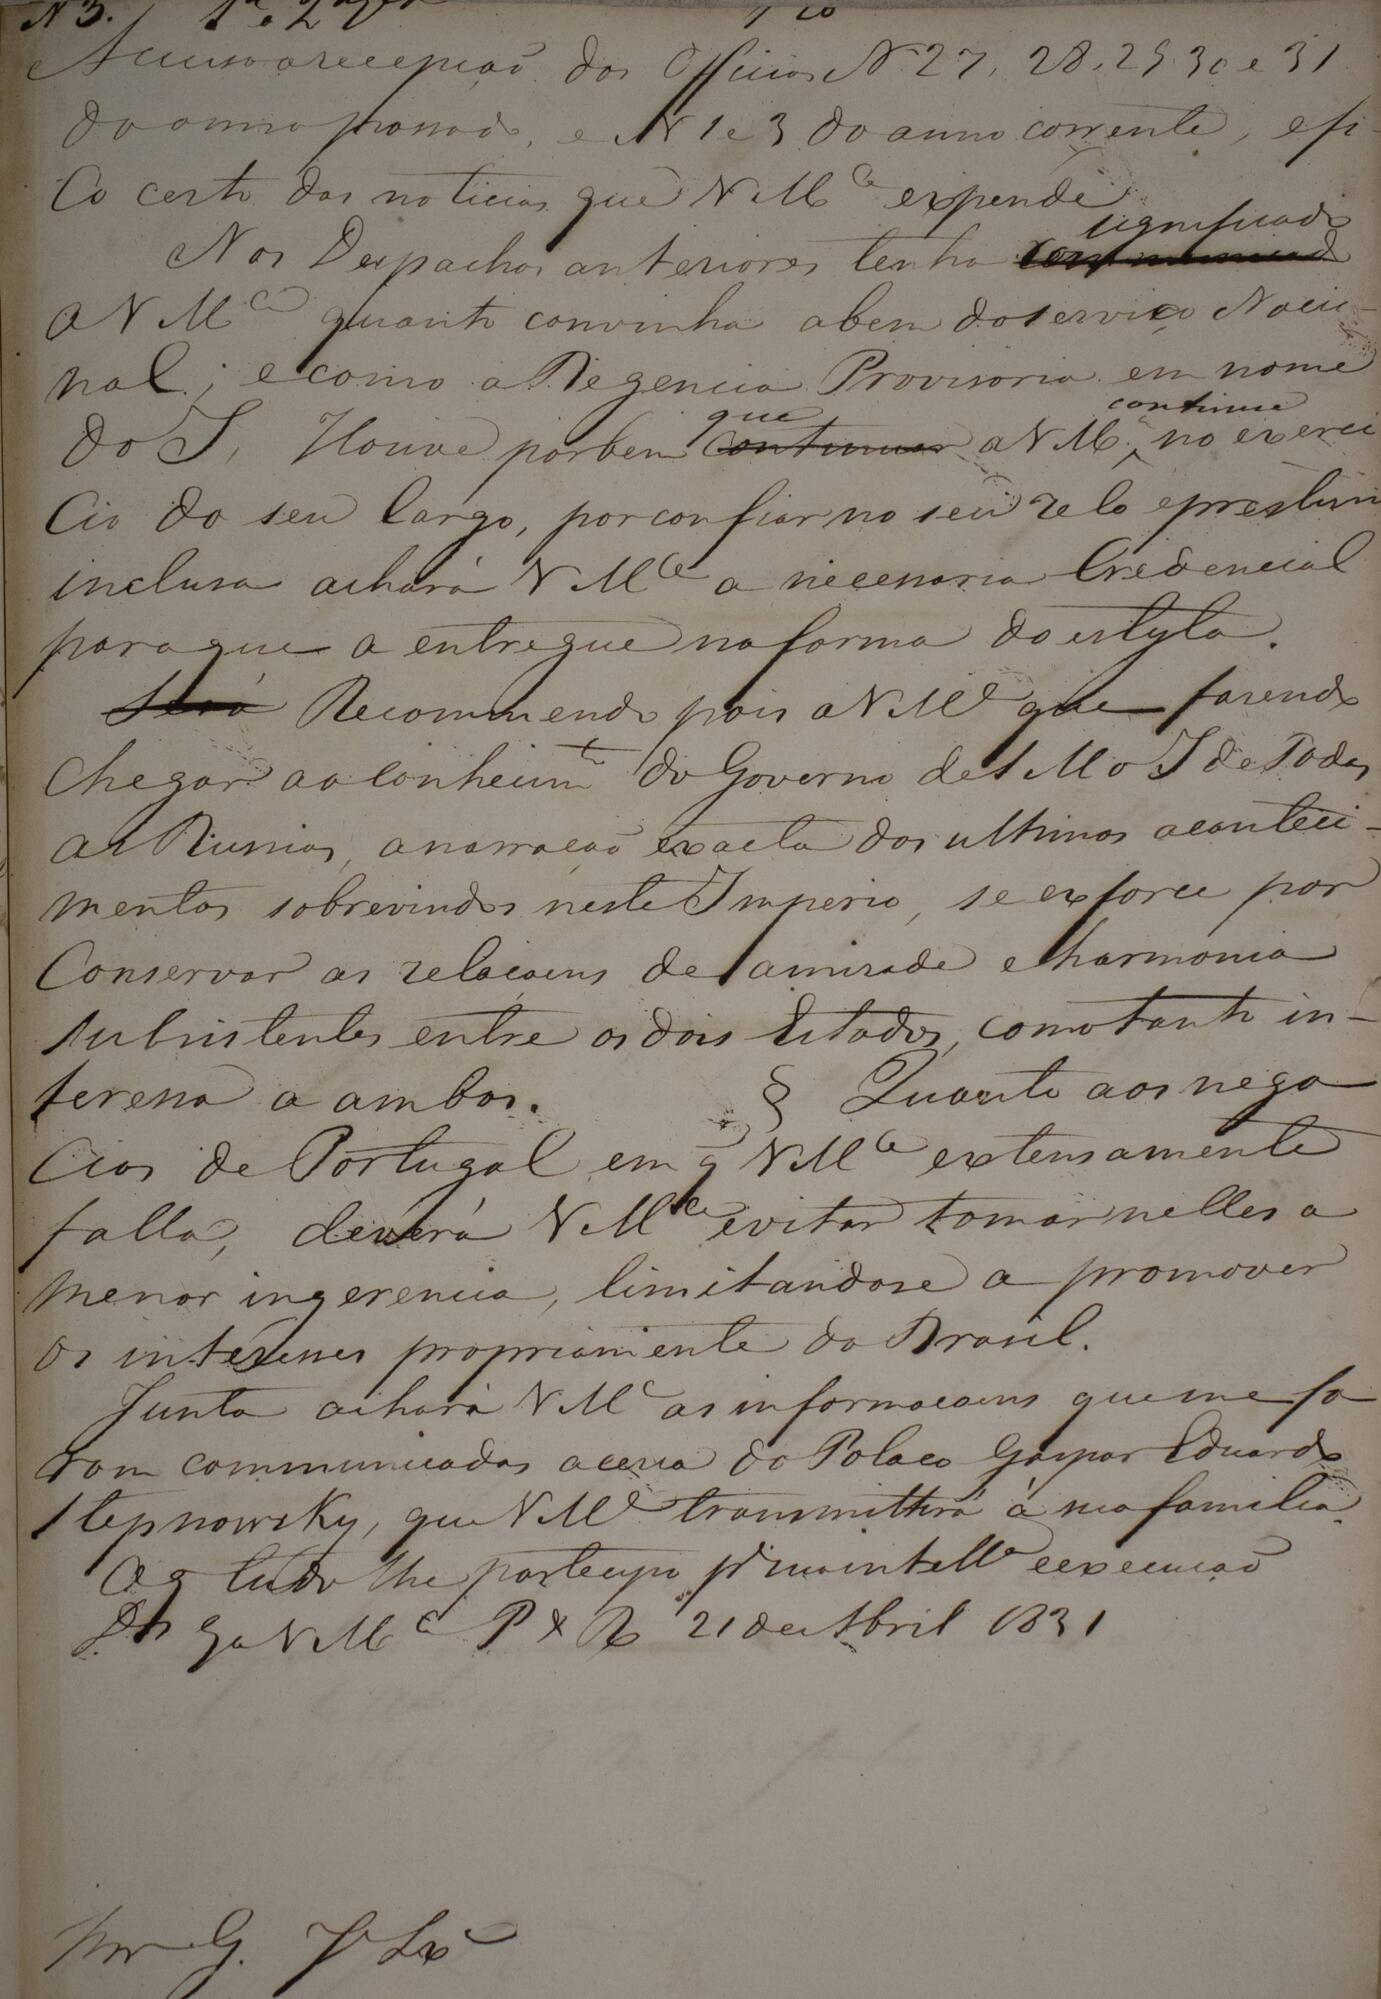 N 3. 1a e 2a
Accuso a recepçaõ dos Officios N 27, 28, 29, 30 e 31
do anno passado, e N 1 e 3 do anno corrente, e fi-
co certo das noticias que V Mce expende
significado
Nos Despachos anteriores tenho communicado
a V Mce quanto convinha a bem do serviço Nacio-
nal; e como a Regencia Provisoria em nome
que continue
do I, Houve por bem continuar a V Mce no exerci
cio do seu Cargo, por confiar no seu zelo e prestimo
inclusa achará V Mce a necessaria Credencial
para que a entregue na forma do estylo.
Será Recommendo pois a V Mce que fasendo
chegar ao Conhecimto do Governo de S M o I de Todas
as Russias, a narraçaõ exacta dos ultimos aconteci-
mentos sobrevindos neste Imperio, se exforce por
Conservar as relaçoens de amisade e harmonia
subsistentes entre os dois Estados, como tanto in-
teressa a ambos. § Quanto aos nego
cios de Portugal em q V Mce extensamente
falla, deverá V Mce evitar tomar nelles a
menor ingerencia, limitandose a promover
os interesses propriamente do Brasil.
Junto achará V Mce as informaçoens que me fo
ram communicadas acerca do Polaco Gaspar Eduardo
Stepnowsky, que V Mce transmittirá á sua familia.
O q tudo lhe participo pa sua intella e execuçaõ
Ds Ge a V Mce P 21 de Abril 1831